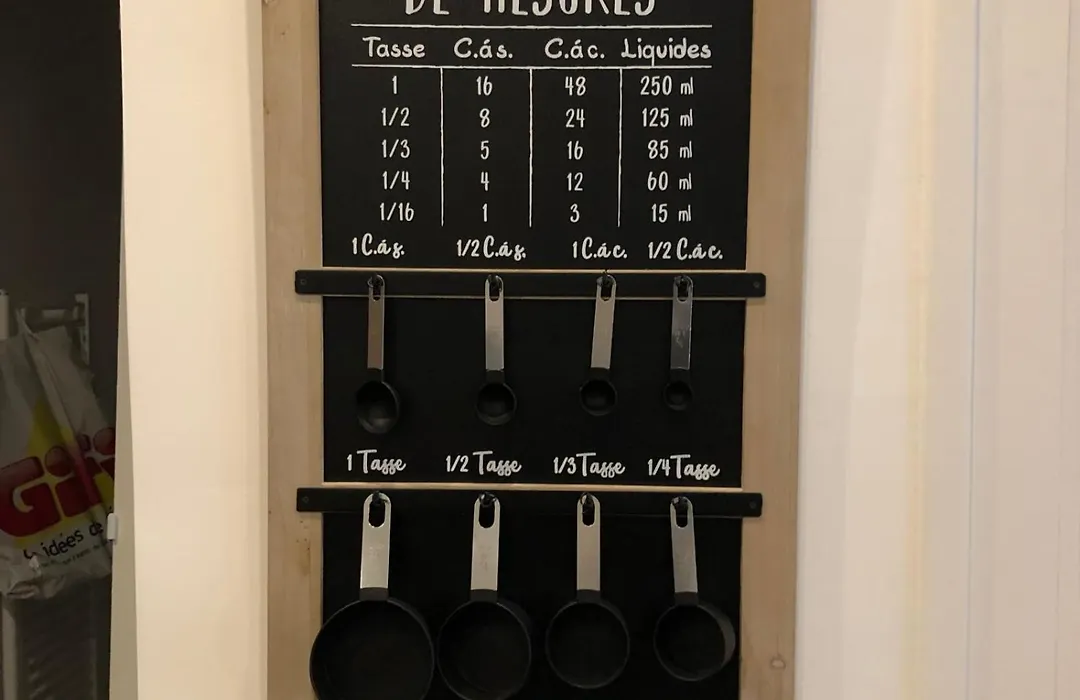 DE MESURES
Tasse C.às. C.àc. Liquides
1 16 48 250 ml
1/2 8 24 125 ml
1/3 5 16 85 ml
1/4 4 12 60 ml
1/16 1 3 15 ml
1 C.à s. 1/2 C.à s. 1 C.à c. 1/2 C.à c.
1 Tasse 1/2 Tasse 1/3 Tasse 1/4 Tasse
idées de